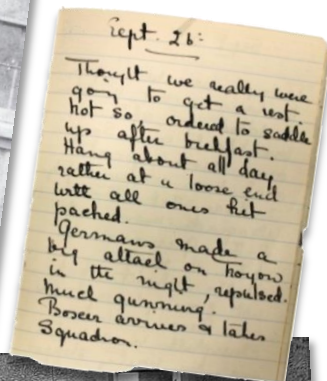 Sept. 26:
Thought we really were
going to get a rest.
Not so, ordered to saddle
up after breakfast.
Hang about all day
rather at a loose end
with all ones kit
packed.
Germans made a
big attack on Troyon
in the night, repulsed.
Much gunning.
arrives & takes
Squadron.